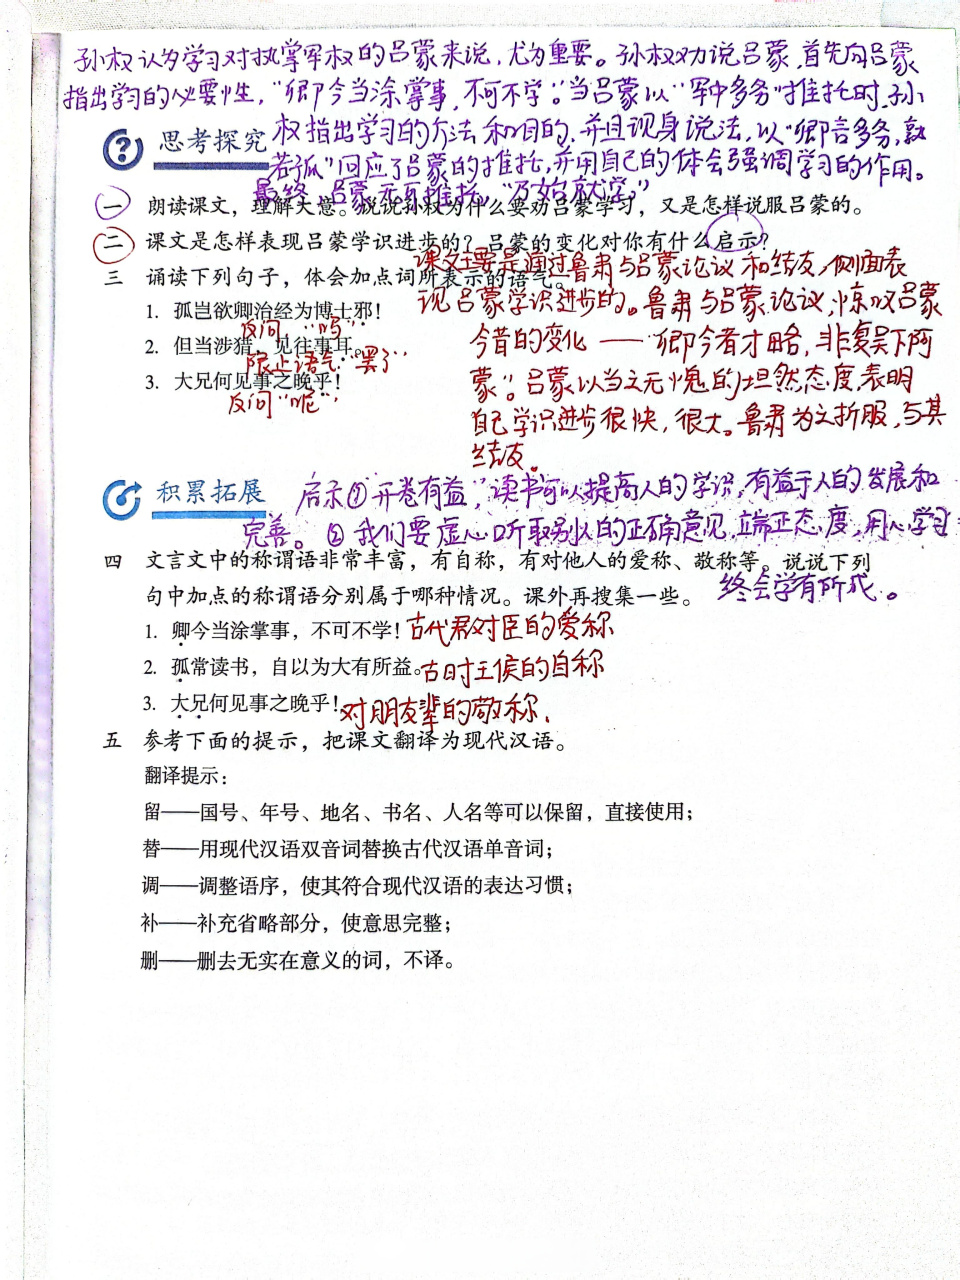 孙权认为学习对执掌军权的吕蒙来说,尤为重要。孙权劝说吕蒙,首先向吕蒙
指出学习的必要性,“卿今当涂掌事,不可不学”。当吕蒙以“军中多务”推托时,孙
权指出学习的方法和目的,并且现身说法,以“卿言多务,孰
若孤”回应了吕蒙的推托,并用自己的体会强调学习的作用。
最终,吕蒙无可推托,“乃始就学”
思考探究
一 朗读课文,理解大意。说说孙权为什么要劝吕蒙学习,又是怎样说服吕蒙的。
二 课文是怎样表现吕蒙学识进步的?吕蒙的变化对你有什么启示?
课文主要是通过鲁肃与吕蒙论议和结友,侧面表
现吕蒙学识进步的。鲁肃与吕蒙论议,惊叹吕蒙
今昔的变化——“卿今者才略,非复吴下阿
蒙”。吕蒙以当之无愧的坦然态度,表明
自己学识进步很快,很大。鲁肃为之折服,与其
结友。
三 诵读下列句子,体会加点词所表示的语气。
1. 孤岂欲卿治经为博士邪!
反问 “吗”
2. 但当涉猎,见往事耳。
限止语气“罢了”
3. 大兄何见事之晚乎!
反问“呢”
积累拓展
启示①“开卷有益”,读书可以提高人的学识,有益于人的发展和
完善。②我们要虚心听取别人的正确意见,端正态度,用心学习
终会学有所成。
四 文言文中的称谓语非常丰富,有自称,有对他人的爱称、敬称等。说说下列
句中加点的称谓语分别属于哪种情况。课外再搜集一些。
1. 卿今当涂掌事,不可不学!古代君对臣的爱称
2. 孤常读书,自以为大有所益。古时王侯的自称
3. 大兄何见事之晚乎!对朋友辈的敬称.
五 参考下面的提示,把课文翻译为现代汉语。
翻译提示:
留——国号、年号、地名、书名、人名等可以保留,直接使用;
替——用现代汉语双音词替换古代汉语单音词;
调——调整语序,使其符合现代汉语的表达习惯;
补——补充省略部分,使意思完整;
删——删去无实在意义的词,不译。